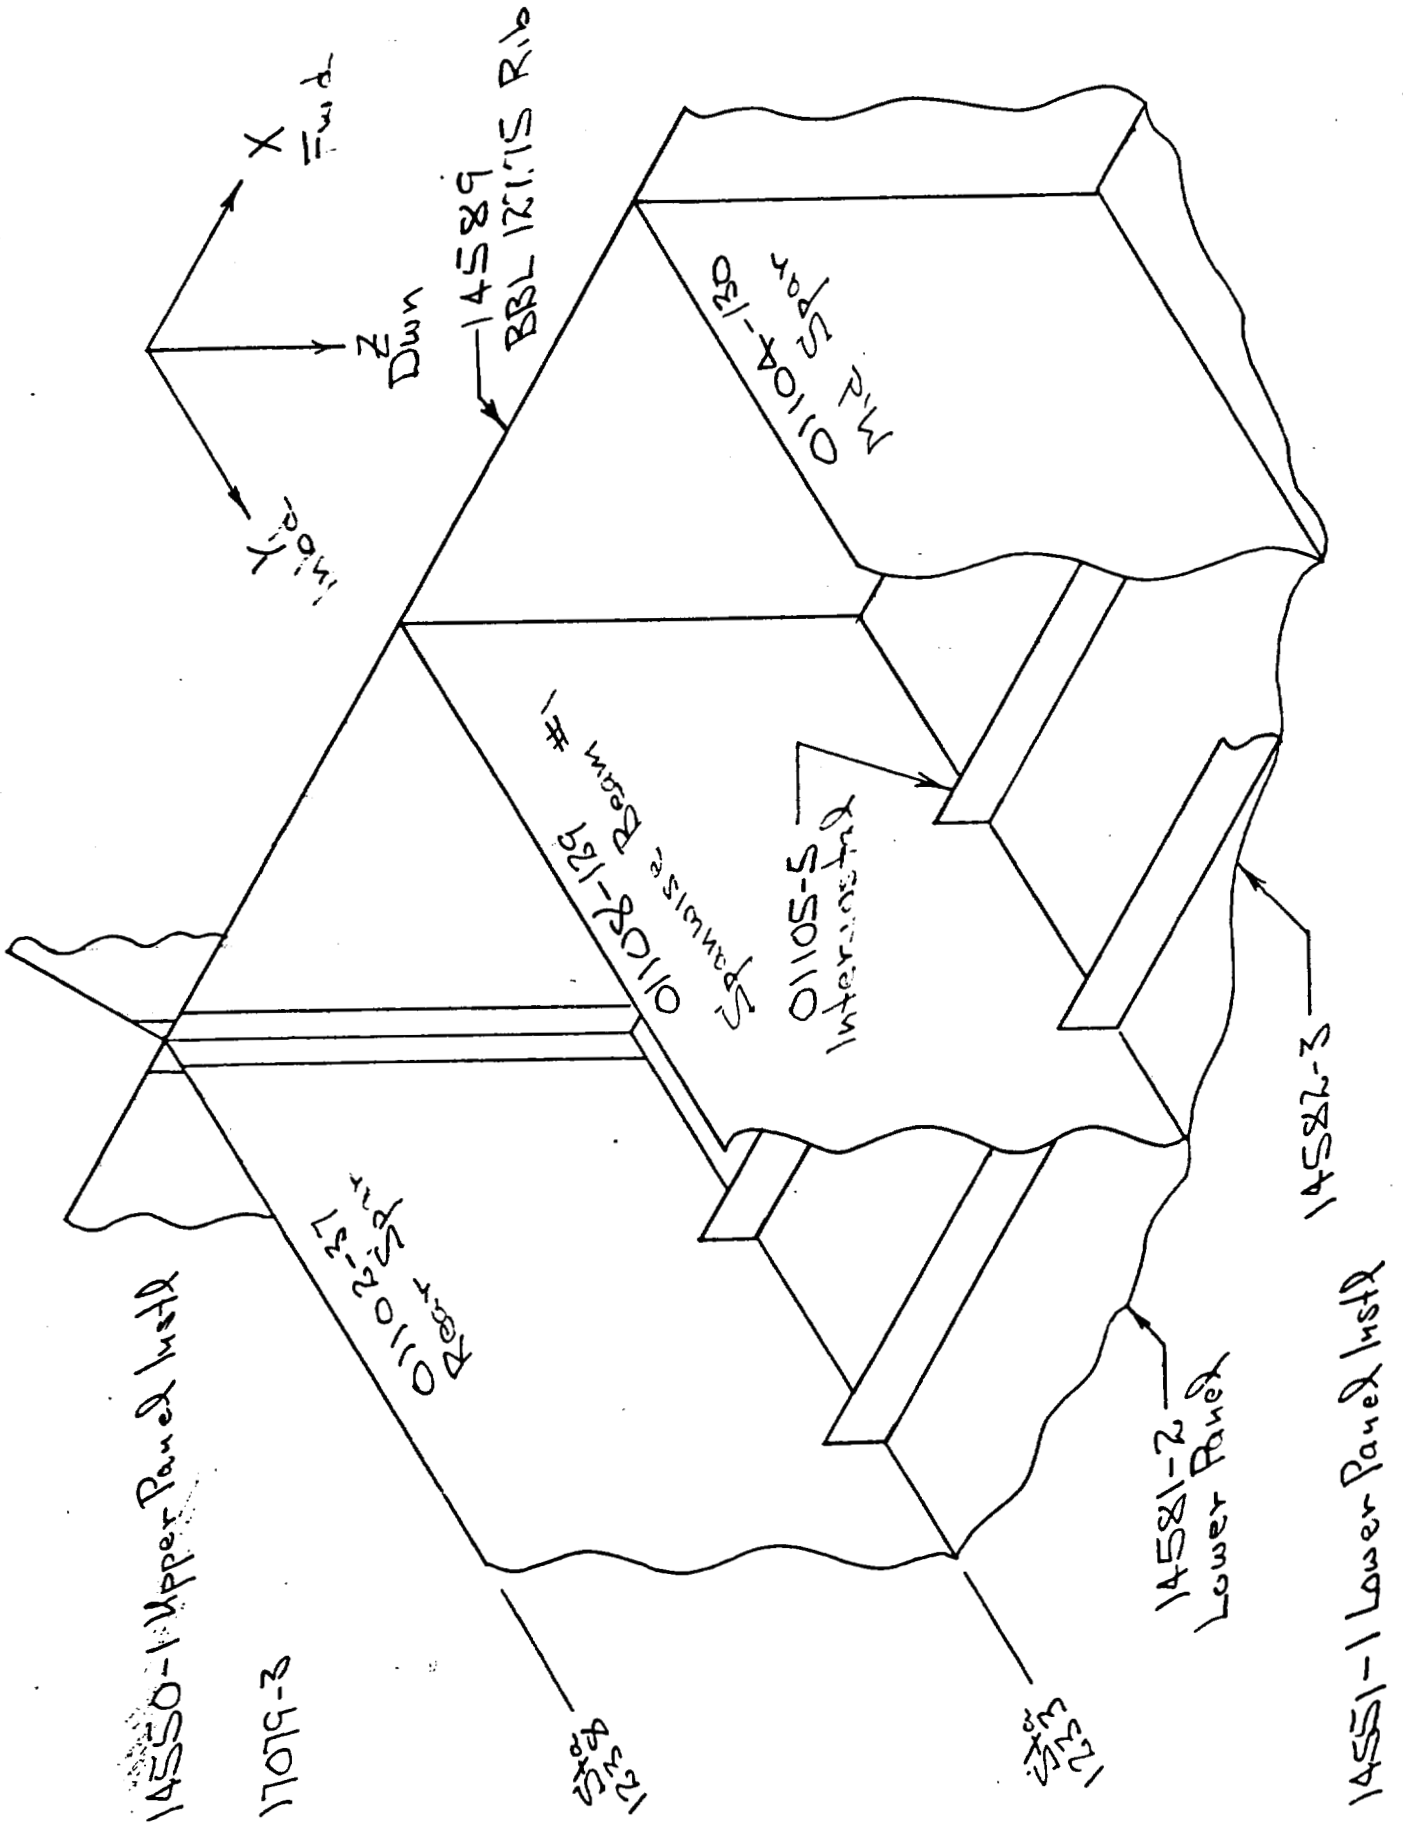 X
Fwd
Y
Inbd
Z
Dwn
14589
BBL 127.75 Rib
01104-130
Mid Spar
01108-129
Spanwise Beam #1
01105-5
Intercostal
01102-37
Rear Spar
14550-1 Upper Panel Instl
17079-3
Sta
1238
Sta
1233
14581-2
Lower Panel
14582-3
14551-1 Lower Panel Instl